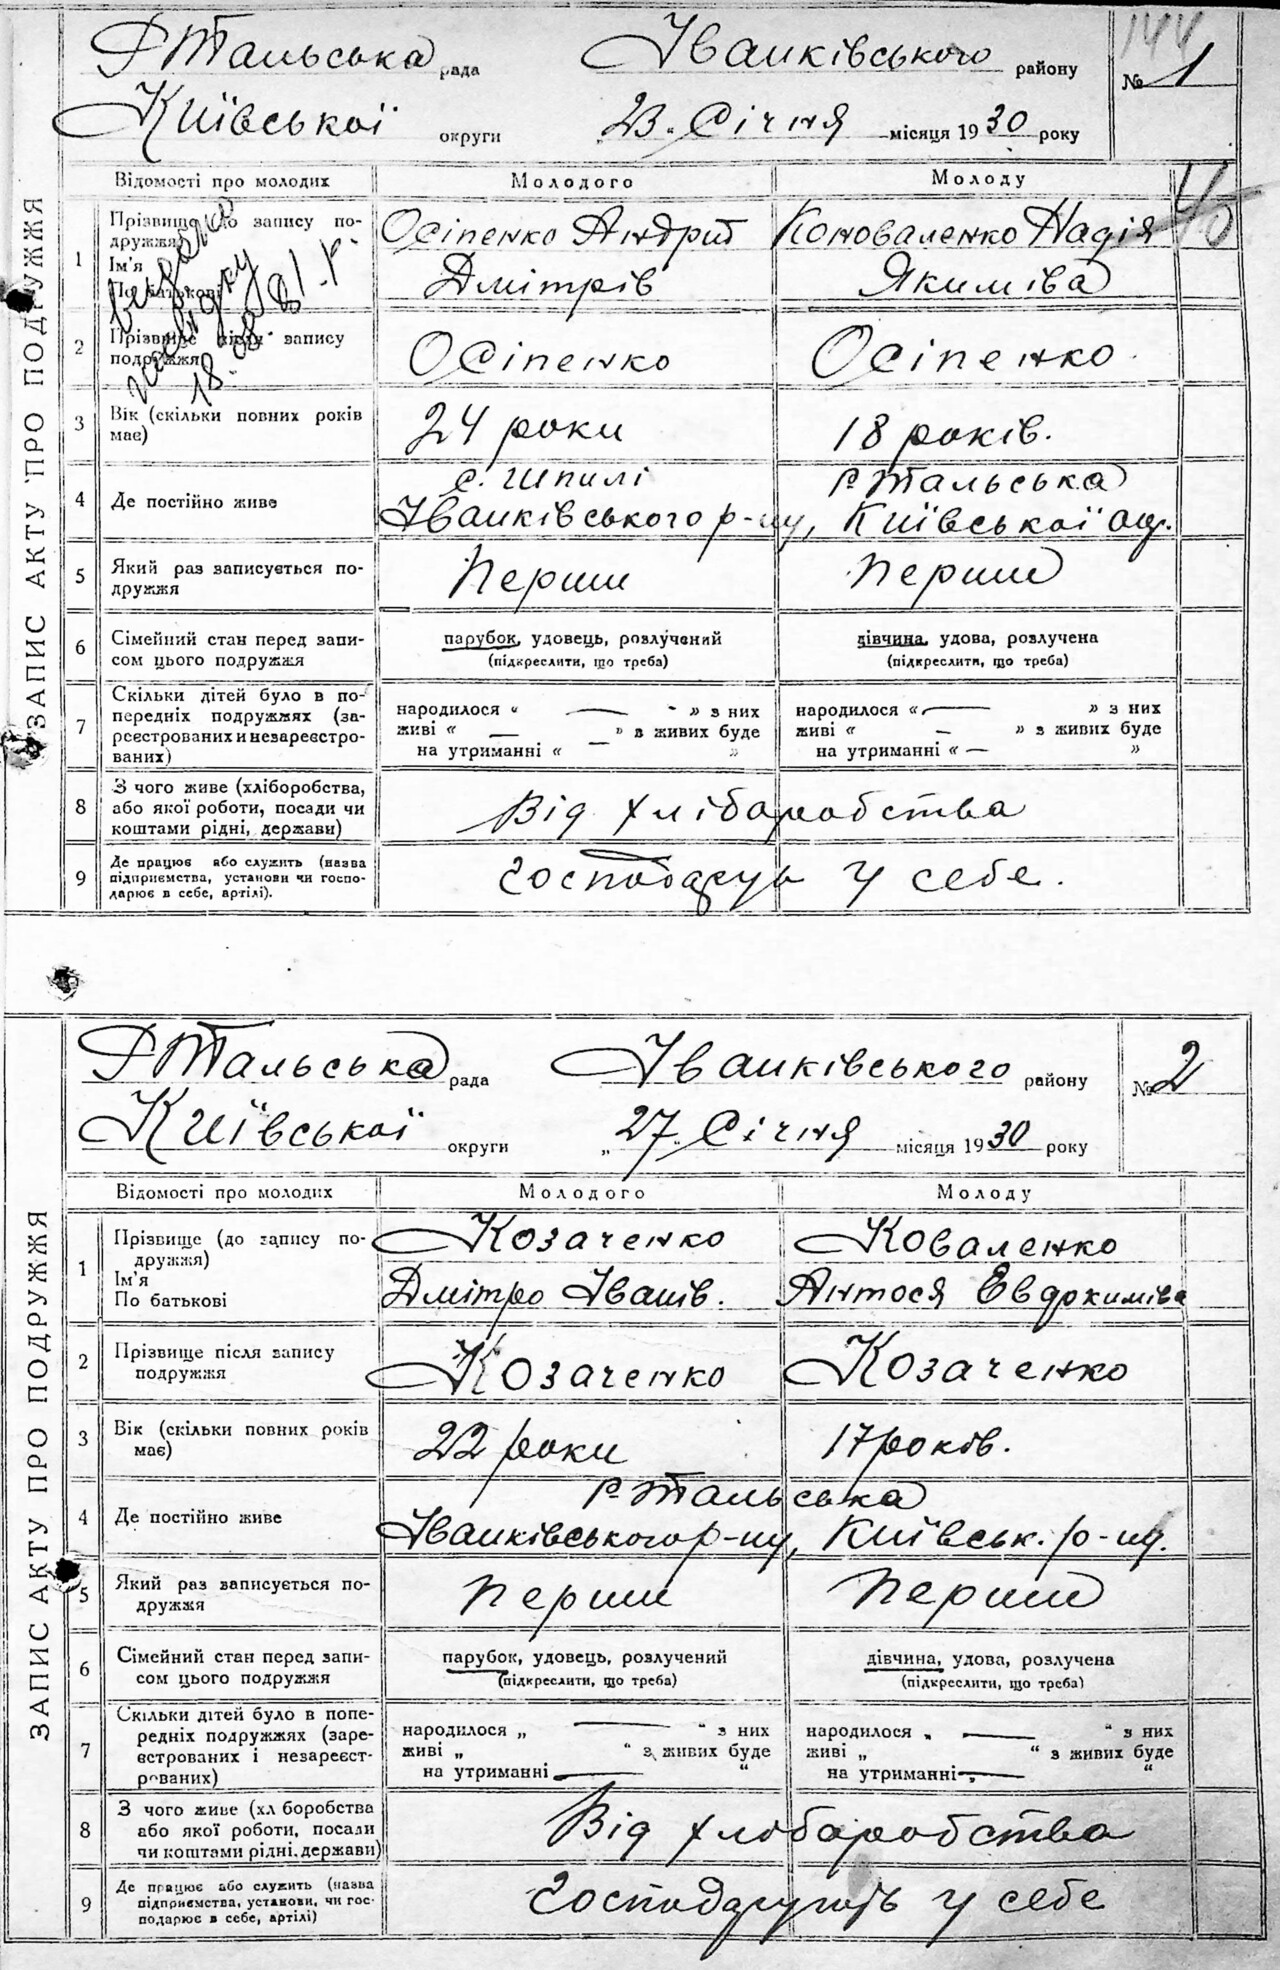 144
Р Тальська рада Іванківського району № 1
Київської округи 23. Січня місяця 1930 року
ЗАПИС АКТУ ПРО ПОДРУЖЖЯ
Відомості про молодих Молодого Молоду
1 Прізвище (до запису по- Осіпенко Андрий Коноваленко Надія
дружжя)
Ім'я Дмітрів Якиміва
По батькові
видано
довідку
18. 08 81 р.
2 Прізвище після запису Осіпенко Осіпенко
подружжя
3 Вік (скільки повних років 24 роки 18 років.
має)
с. Шпилі Р Тальська
4 Де постійно живе Іванківського р-ну, Київської окр.
5 Який раз записується по- Перши Перши
дружжя
6 Сімейний стан перед запи- парубок, удовець, розлучений дівчина, удова, розлучена
сом цього подружжя (підкреслити, що треба) (підкреслити, що треба)
7 Скільки дітей було в по-
передніх подружжях (за- народилося « — » з них народилося « — » з них
реєстрованих и незареєстро- живі « — » з живих буде живі « — » з живих буде
ваних) на утриманні « — » на утриманні « — »
8 З чого живе (хліборобства,
або якої роботи, посади чи Від хліборобства
коштами рідні, держави)
9 Де працює або служить (назва
підприємства, установи чи госпо- Господарують у себе.
дарює в себе, артілі).
Р Тальська рада Іванківського району № 2
Київської округи „27. Січня місяця 1930 року
ЗАПИС АКТУ ПРО ПОДРУЖЖЯ
Відомості про молодих Молодого Молоду
1 Прізвище (до запису по- Козаченко Коваленко
дружжя)
Ім'я Дмітро Іванів. Антося Евдокиміва
По батькові
2 Прізвище після запису Козаченко Козаченко
подружжя
3 Вік (скільки повних років 22 роки 17 років.
має)
Р Тальська
4 Де постійно живе Іванківського р-ну, Київськ. р-ну.
5 Який раз записується по- Перши Перши
дружжя
6 Сімейний стан перед запи- парубок, удовець, розлучений дівчина, удова, розлучена
сом цього подружжя (підкреслити, що треба) (підкреслити, що треба)
7 Скільки дітей було в попе-
редніх подружжях (заре- народилося „ — “ з них народилося „ — “ з них
єстрованих і незареєст- живі „ “ з живих буде живі „ “ з живих буде
рованих) на утриманні — “ на утриманні — “
8 З чого живе (хл боробства
або якої роботи, посади Від хліборобства
чи коштами рідні, держави)
9 Де працює або служить (назва
підприємства, установи, чи гос- Господарують у себе
подарює в себе, артілі)